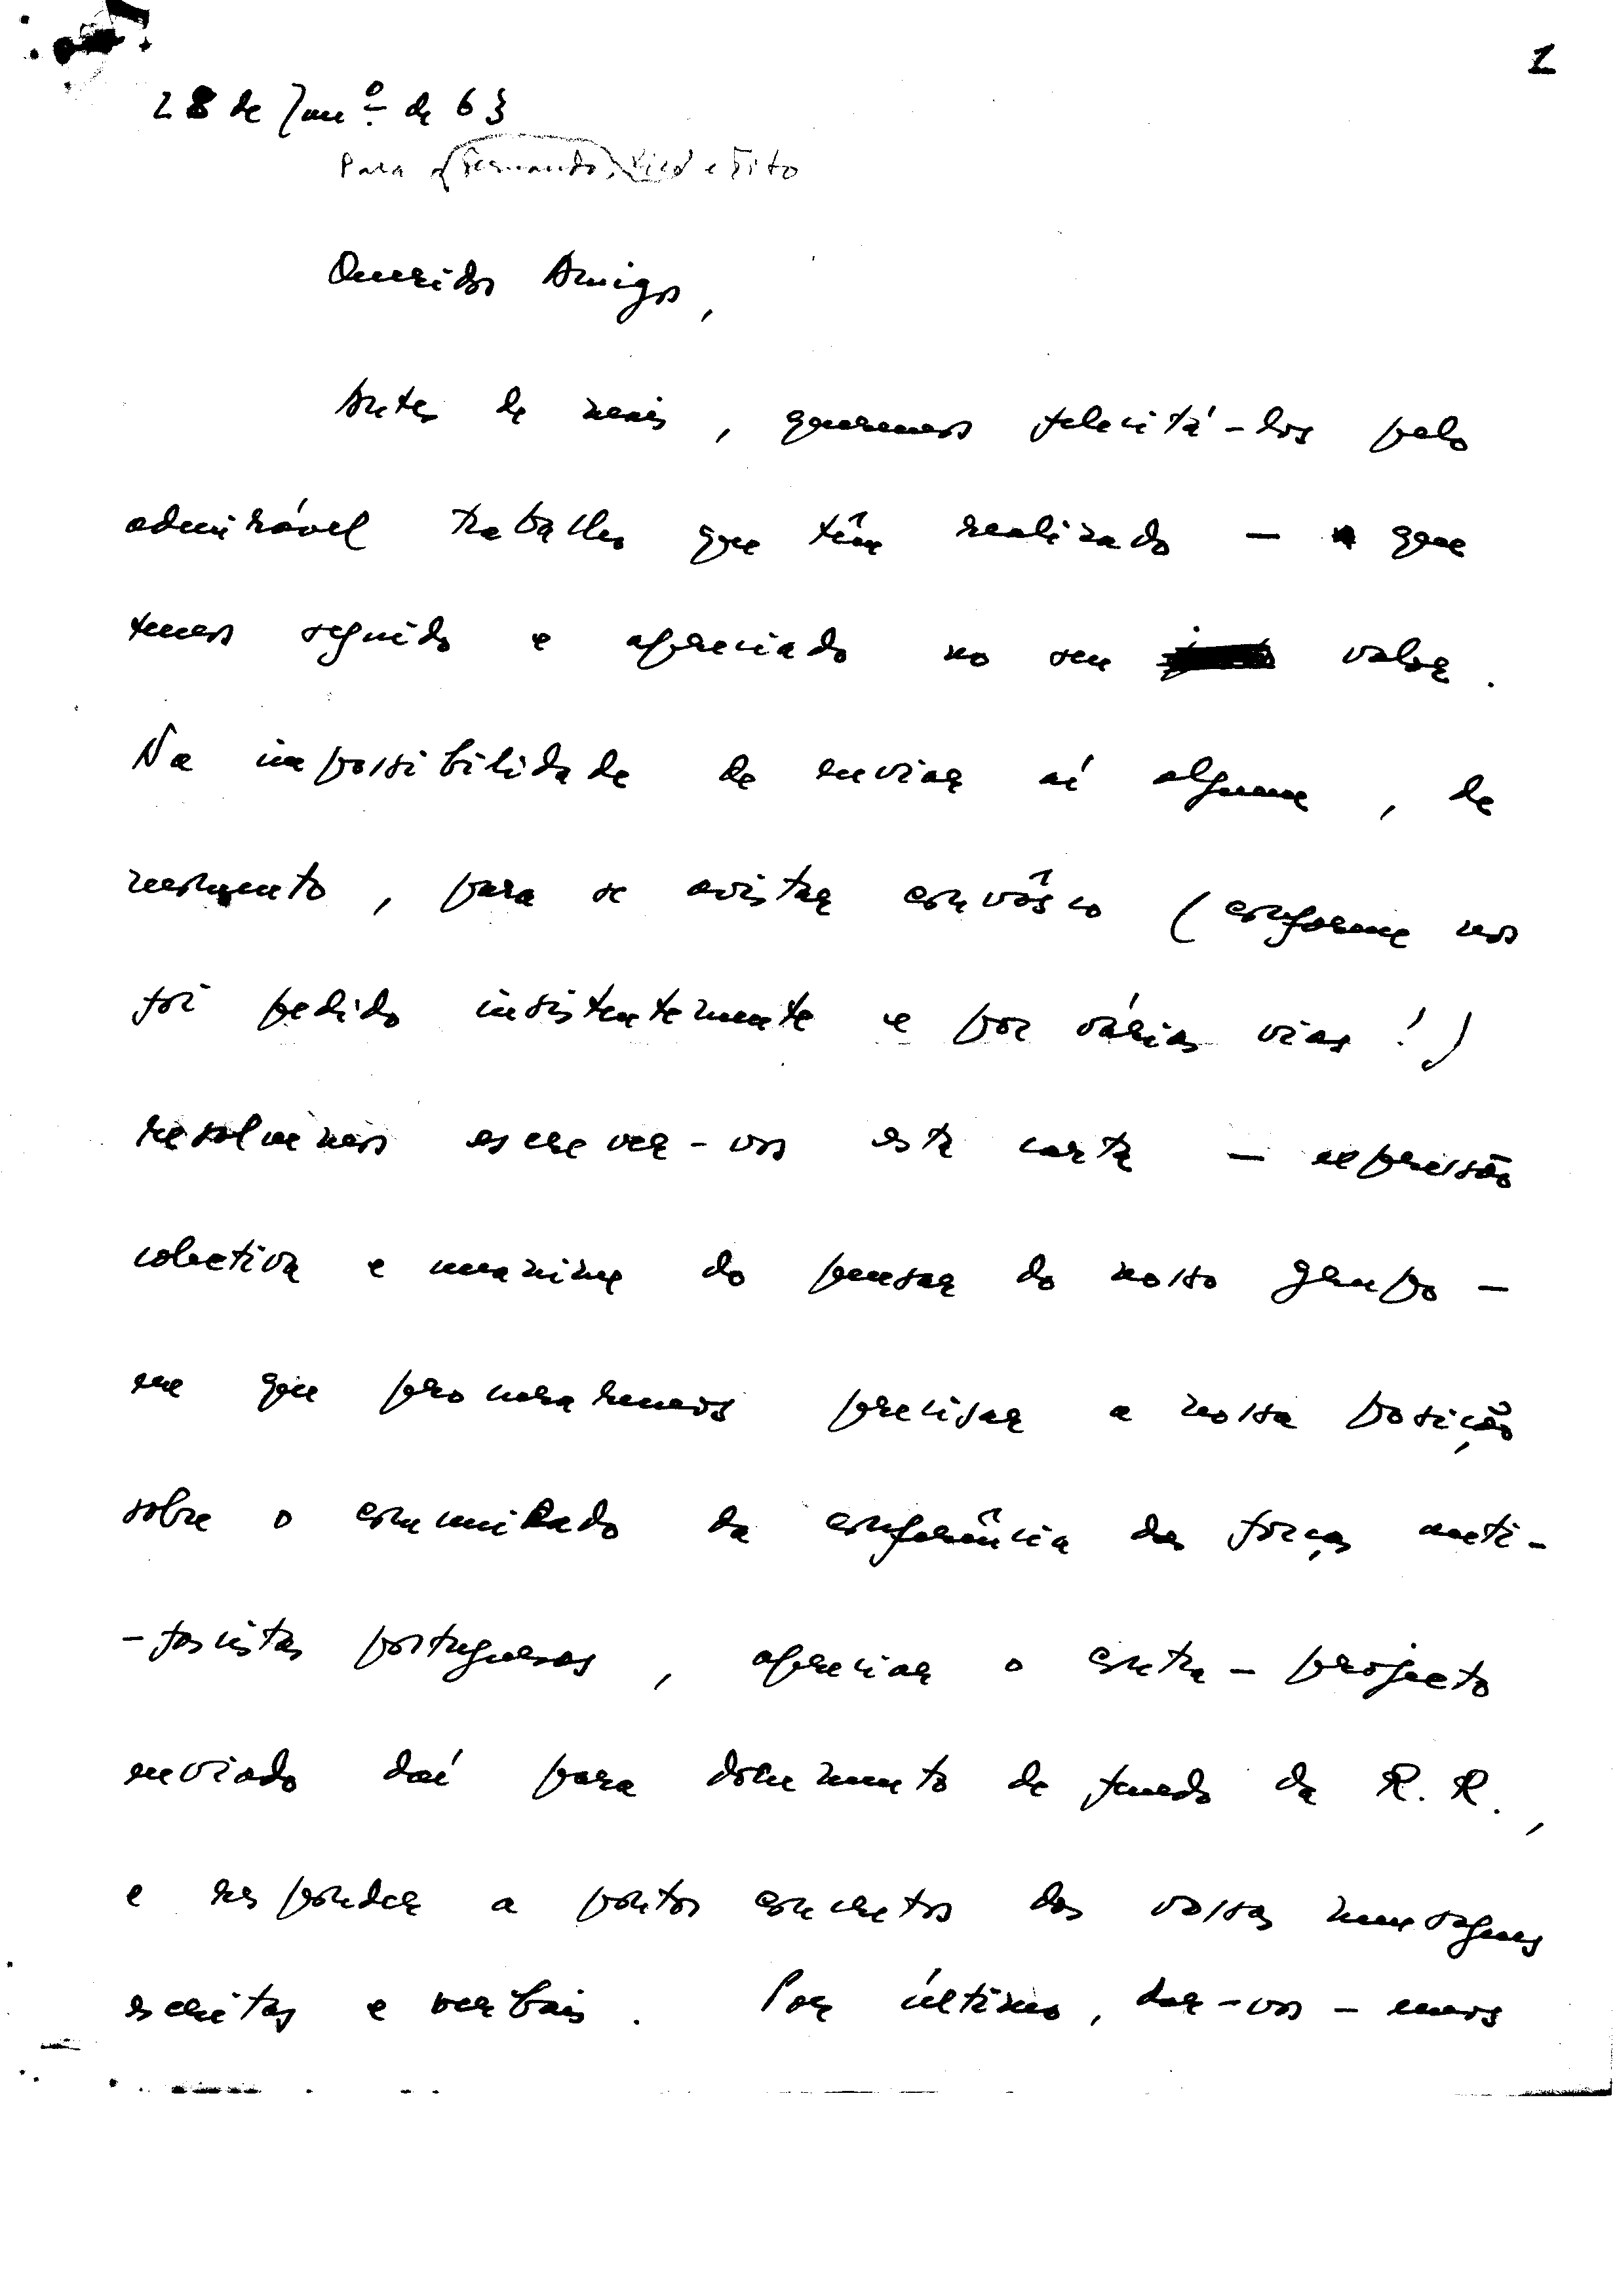 1
28 de Janº de 63
Para Fernando, e Tito
Queridos Amigos,
Antes de mais, queremos felicitá-los pelo
admirável trabalho que têm realizado — que
temos seguido e apreciado no seu valor.
Na impossibilidade de enviar aí alguém, de
momento, para se avistar convôsco (conforme nos
foi pedido insistentemente e por várias vias!)
resolvemos escrever-vos esta carta — expressão
colectiva e unanime do pensar do nosso grupo —
em que procuraremos precisar a nossa posição
sobre o comunicado da conferência das forças anti-
-fascistas portuguesas, apreciar o contra-projecto
enviado daí para documento de fundo da R. R.,
e responder a pontos concretos das vossas mensagens
escritas e verbais. Por último, dar-vos-emos